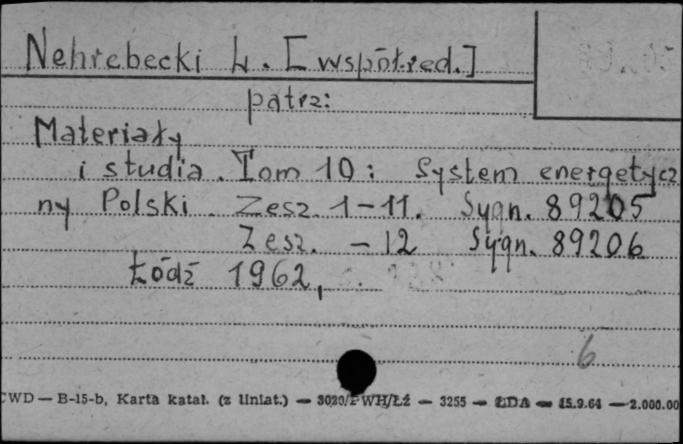 Nehrebecki L. [współred.]
patrz:
Materiały
i studia. Tom 10: System energetycz
ny Polski. Zesz. 1-11. Sygn. 89205
Zesz. -12 Sygn. 89206
Łódź 1962,
6
CWD — B-15-b, Karta katal. (z liniat.) — 3020/PWH/Łź — 3255 — ŁDA — 15.9.61 — 2.000.00